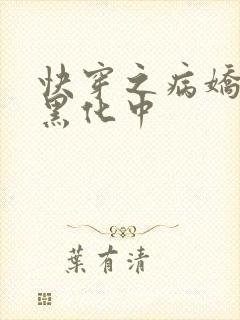 快穿之病嬌
黑化中
葉有清